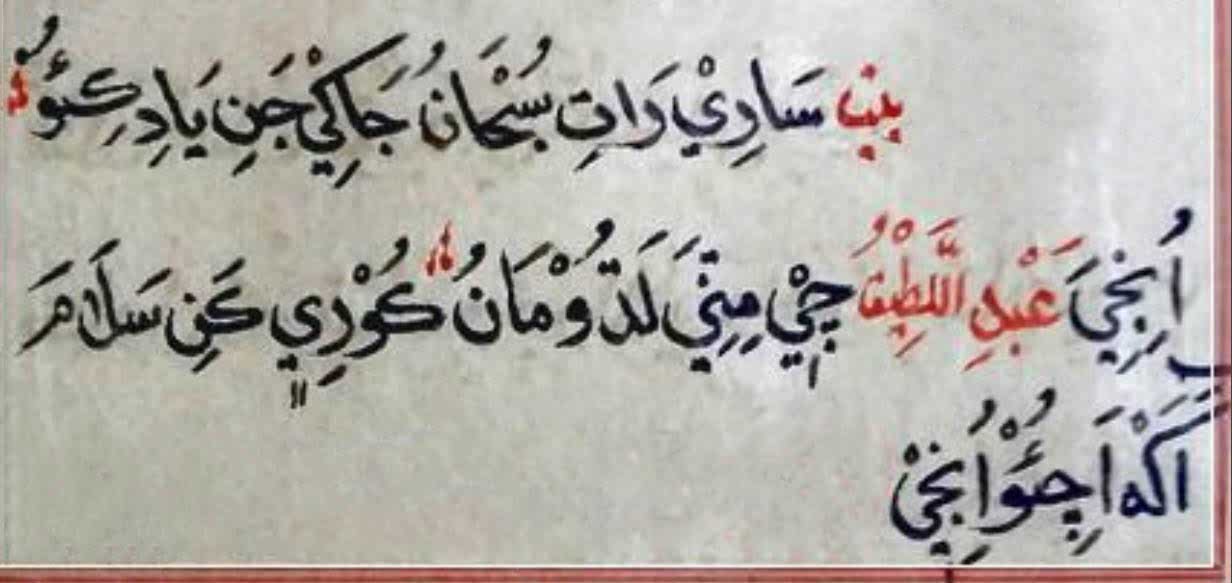 بيت سَارِيْ رَاتِ سُبْحَانُ جَاكِيْ جَنِ يَادِ كِئَوُ
اُنِجِيَ عَبْدِ اللَّطِيْفُ چِيْ مِٽِيَ لَڌُوْ مَانُ كُوْڙِيٖ كَنِ سَلَامَ
اَكَهْ اَچِئَوْ اُنِجِيْ